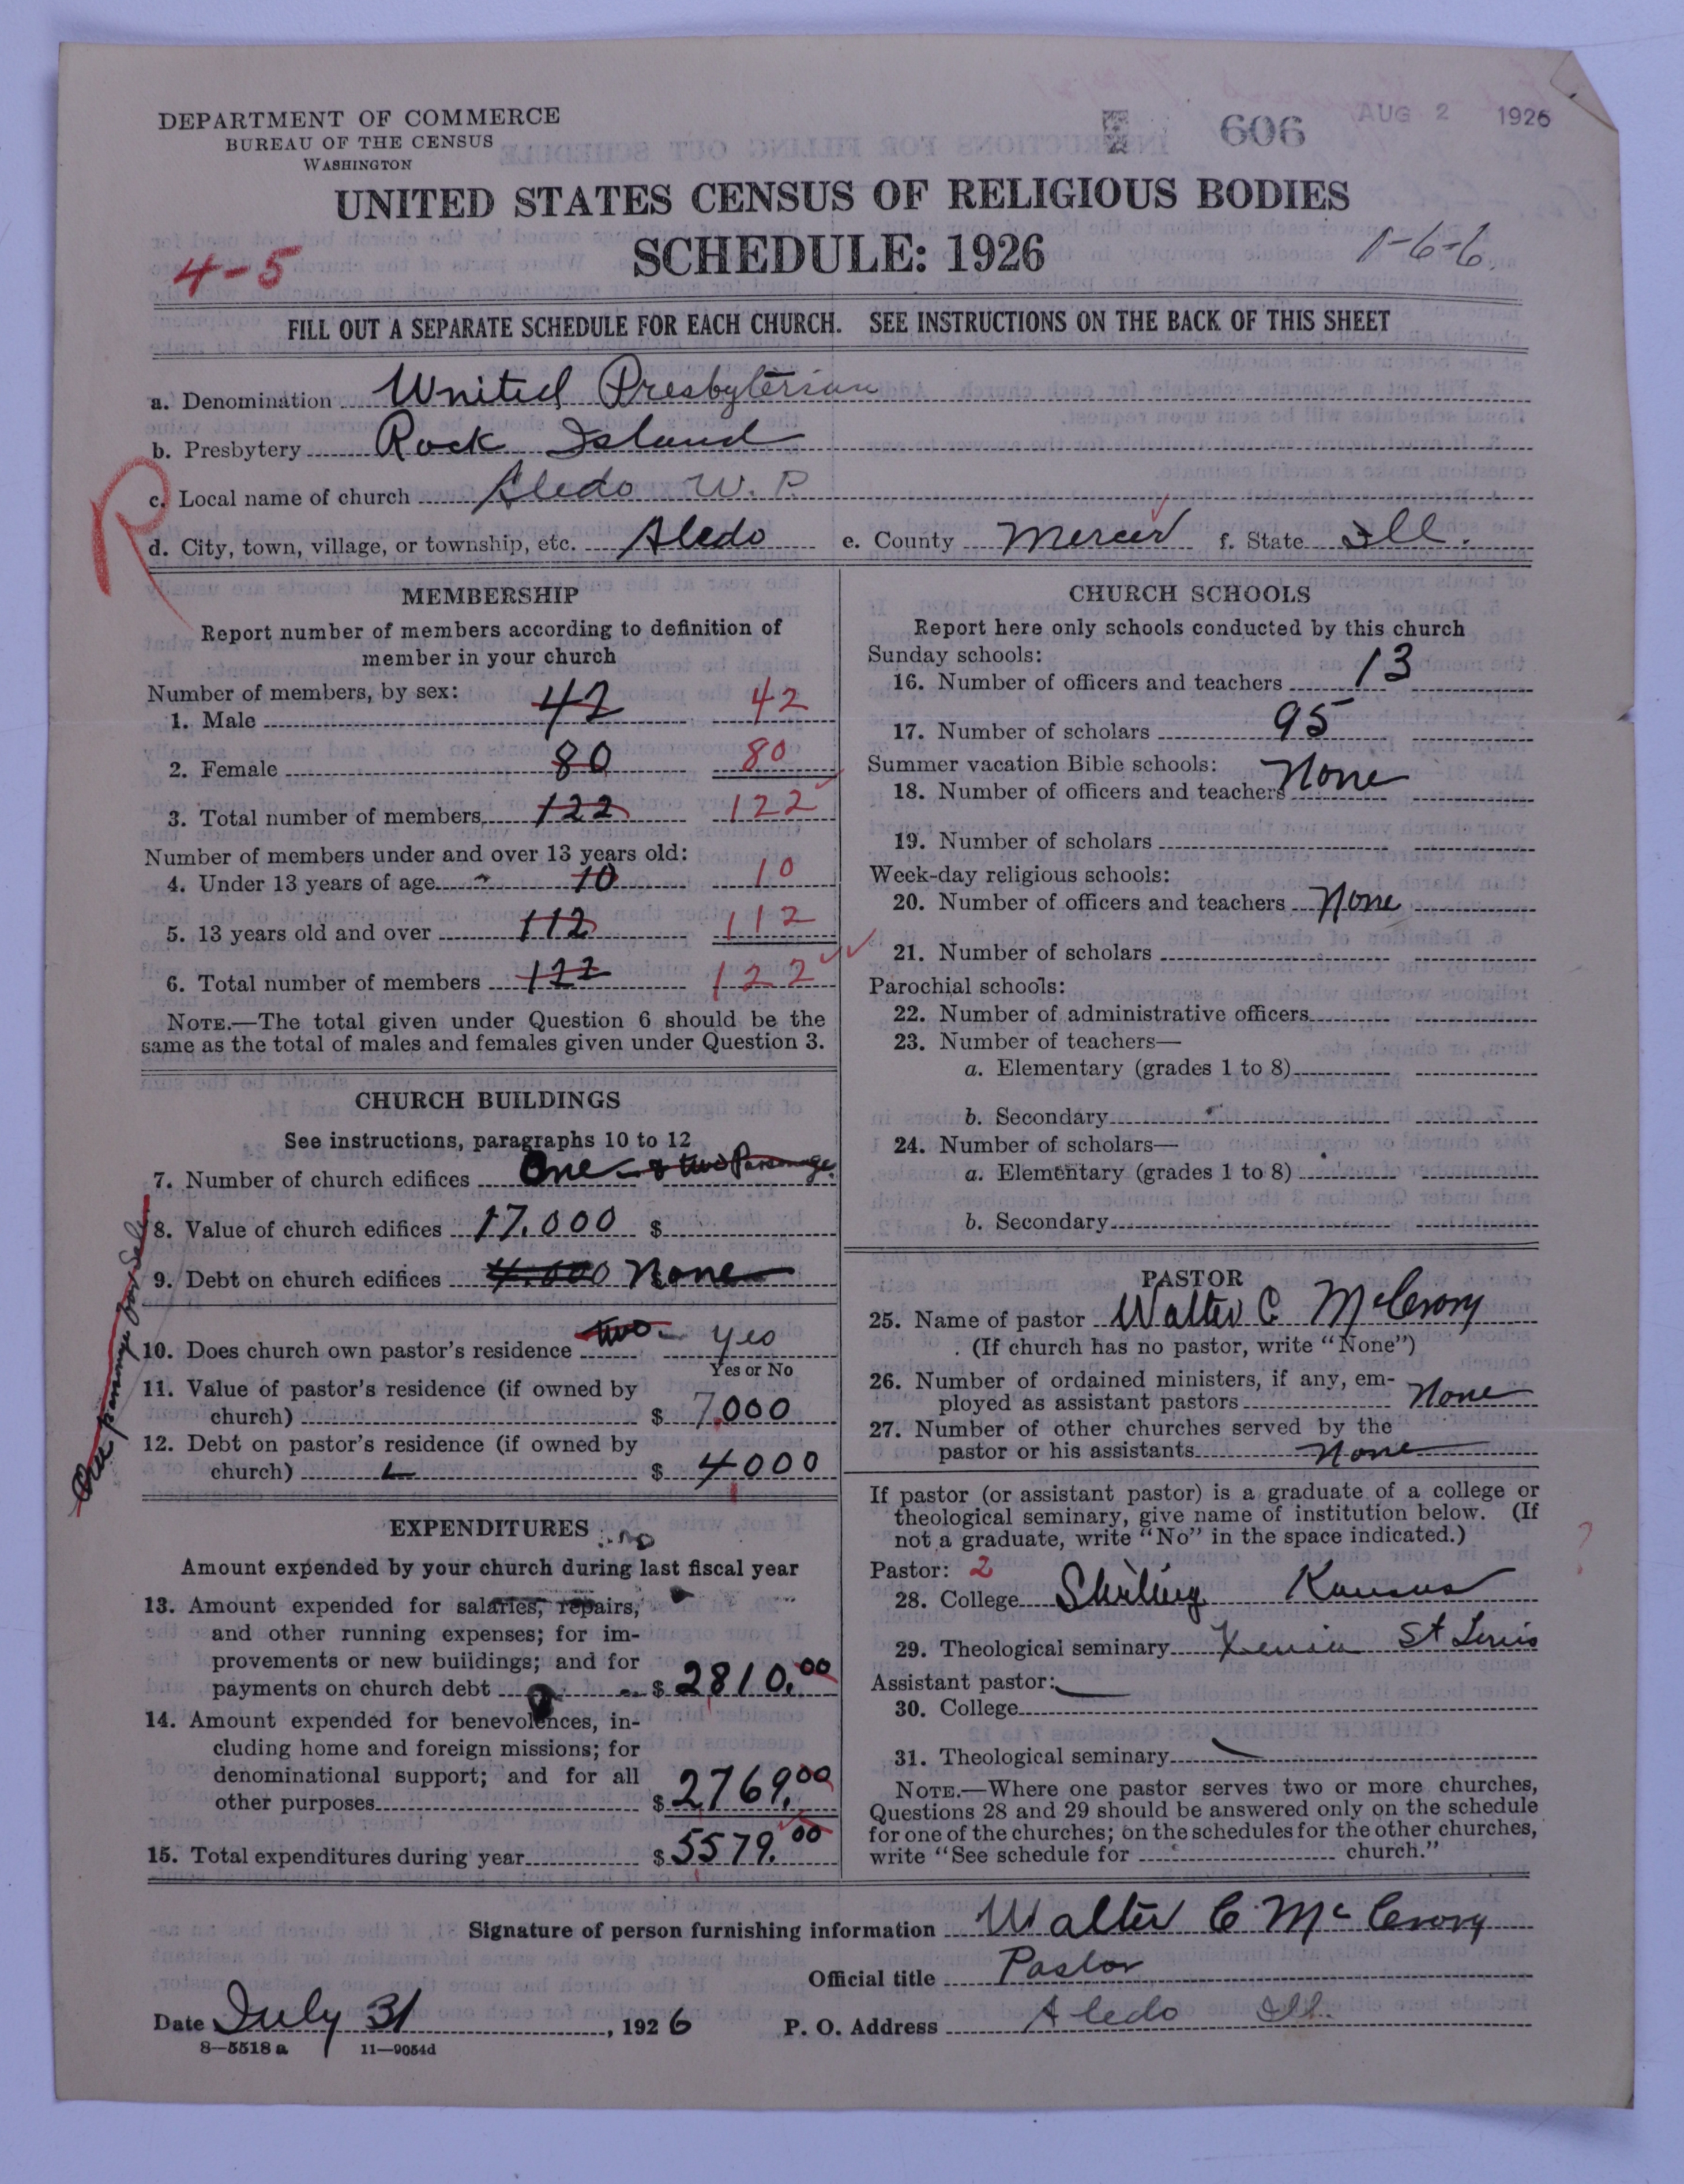 DEPARTMENT OF COMMERCE
BUREAU OF THE CENSUS
WASHINGTON
606
AUG 2 1926
UNITED STATES CENSUS OF RELIGIOUS BODIES
SCHEDULE: 1926
4-5
1-6-6.
FILL OUT A SEPARATE SCHEDULE FOR EACH CHURCH. SEE INSTRUCTIONS ON THE BACK OF THIS SHEET
a. Denomination United Presbyterian
b. Presbytery Rock Island
R
c. Local name of church Aledo U. P.
d. City, town, village, or township, etc. Aledo e. County Mercer f. State Ill.
MEMBERSHIP
Report number of members according to definition of
member in your church
Number of members, by sex:
1. Male 42 42
2. Female 80 80
3. Total number of members 122 122
Number of members under and over 13 years old:
4. Under 13 years of age 10 10
5. 13 years old and over 112 112
6. Total number of members 122 122
NOTE.—The total given under Question 6 should be the
same as the total of males and females given under Question 3.
CHURCH BUILDINGS
See instructions, paragraphs 10 to 12
7. Number of church edifices One - & two Parsonage
8. Value of church edifices 17.000 $
9. Debt on church edifices 4.000 None
One parsonage for Sale
10. Does church own pastor's residence two - yes
Yes or No
11. Value of pastor's residence (if owned by
church) $ 7,000
12. Debt on pastor's residence (if owned by
church) $ 4000
EXPENDITURES
Amount expended by your church during last fiscal year
13. Amount expended for salaries, repairs,
and other running expenses; for im-
provements or new buildings; and for
payments on church debt $ 2810.00
14. Amount expended for benevolences, in-
cluding home and foreign missions; for
denominational support; and for all
other purposes $ 2769.00
15. Total expenditures during year $ 5579.00
CHURCH SCHOOLS
Report here only schools conducted by this church
Sunday schools:
16. Number of officers and teachers 13
17. Number of scholars 95
Summer vacation Bible schools:
18. Number of officers and teachers None
19. Number of scholars
Week-day religious schools:
20. Number of officers and teachers None
21. Number of scholars
Parochial schools:
22. Number of administrative officers
23. Number of teachers—
a. Elementary (grades 1 to 8)
b. Secondary
24. Number of scholars—
a. Elementary (grades 1 to 8)
b. Secondary
PASTOR
25. Name of pastor Walter C McCrory
(If church has no pastor, write "None")
26. Number of ordained ministers, if any, em-
ployed as assistant pastors None
27. Number of other churches served by the
pastor or his assistants None
If pastor (or assistant pastor) is a graduate of a college or
theological seminary, give name of institution below. (If
not a graduate, write "No" in the space indicated.)
?
Pastor: 2
28. College Sterling Kansas
29. Theological seminary Xenia St Louis
Assistant pastor:
30. College
31. Theological seminary
NOTE.—Where one pastor serves two or more churches,
Questions 28 and 29 should be answered only on the schedule
for one of the churches; on the schedules for the other churches,
write "See schedule for church."
Signature of person furnishing information Walter C McCrory
Official title Pastor
Date July 31, 1926 P. O. Address Aledo Ill.
8—5518 a 11—9054d